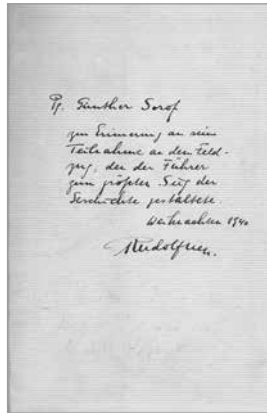 Pg. Günther Sorof
zur Erinnerung an seine
Teilnahme an dem Feld-
zug, den der Führer
zum größten Sieg der
Geschichte gestaltete.
Weihnachten 1940